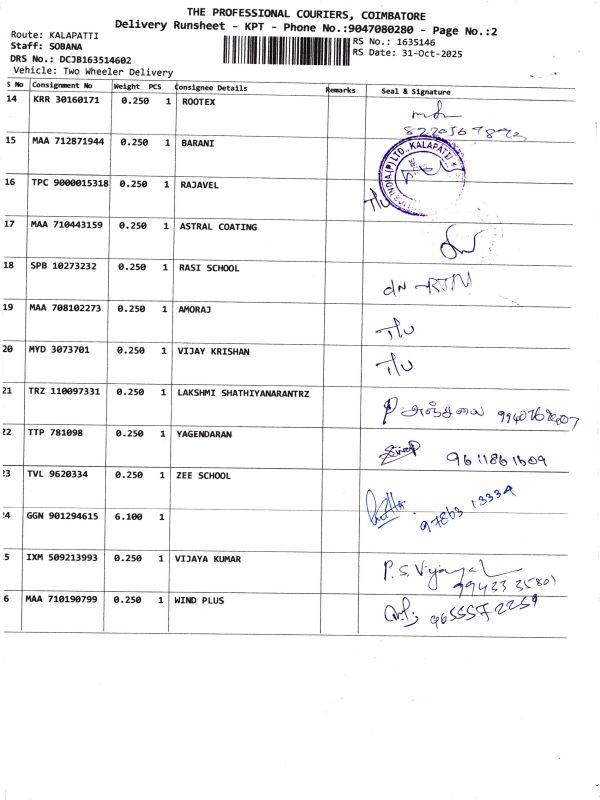 THE PROFESSIONAL COURIERS, COIMBATORE
Delivery Runsheet - KPT - Phone No.:9047080280 - Page No.:2
Route: KALAPATTI
Staff: SOBANA
DRS No.: DCJB163514602
Vehicle: Two Wheeler Delivery
RS No.: 1635146
RS Date: 31-Oct-2025
S No Consignment No Weight PCS Consignee Details Remarks Seal & Signature
14 KRR 30160171 0.250 1 ROOTEX
15 MAA 712871944 0.250 1 BARANI
KALAPATTI
16 TPC 9000015318 0.250 1 RAJAVEL T/U
17 MAA 710443159 0.250 1 ASTRAL COATING
18 SPB 10273232 0.250 1 RASI SCHOOL
19 MAA 708102273 0.250 1 AMORAJ T/U
20 MYD 3073701 0.250 1 VIJAY KRISHAN T/U
21 TRZ 110097331 0.250 1 LAKSHMI SHATHIYANARANTRZ
22 TTP 781098 0.250 1 YAGENDARAN 9611861609
23 TVL 9620334 0.250 1 ZEE SCHOOL 97863 13334
24 GGN 901294615 6.100 1
5 IXM 509213993 0.250 1 VIJAYA KUMAR P.S. Vijayal
99433 35801
6 MAA 710190799 0.250 1 WIND PLUS